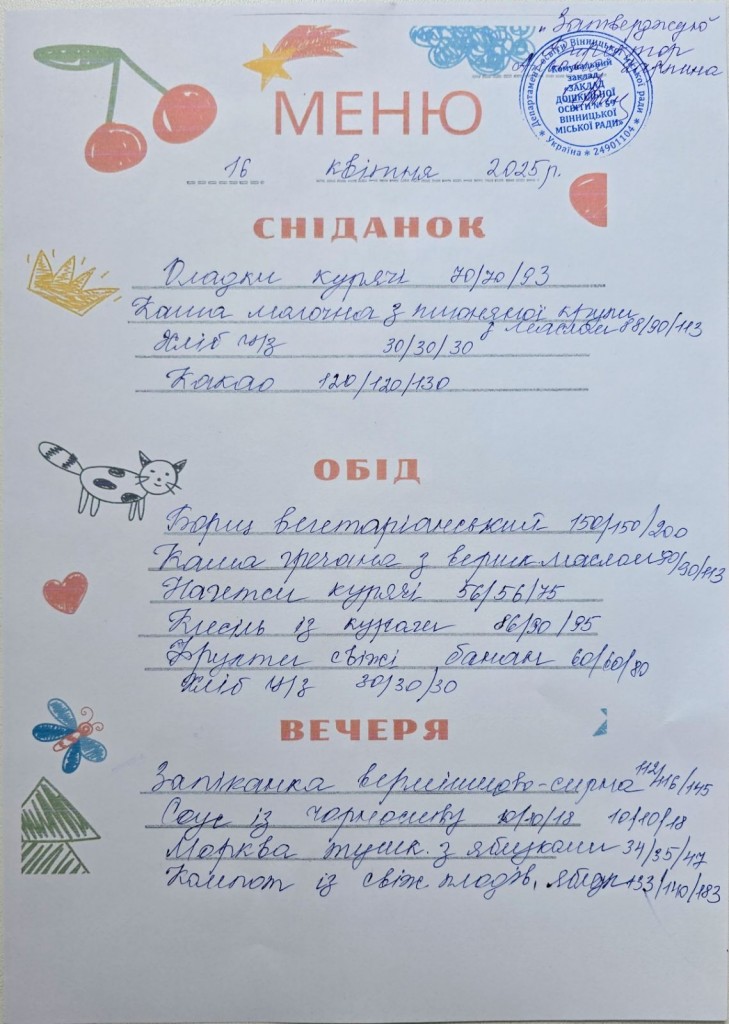 „Затверджую
Директор
МЕНЮ
Департамент освіти Вінницької міської ради
Комунальний
заклад
«ЗАКЛАД
ДОШКІЛЬНОЇ
ОСВІТИ № 59
ВІННИЦЬКОЇ
МІСЬКОЇ РАДИ»
* Україна * 24901104 *
16 квітня 2025р.
СНІДАНОК
Оладки курячі 70/70/93
Каша молочна з пшоняної крупи
з маслом 88/90/113
Хліб ч/з 30/30/30
Какао 120/120/130
ОБІД
Борщ вегетаріанський 150/150/200
Каша гречана з вершк маслом 90/90/113
Нагетси курячі 56/56/75
Кисіль із кураги 86/90/95
Фрукти свіжі банан 60/60/80
Хліб ч/з 30/30/30
ВЕЧЕРЯ
Запіканка вермішелево-сирна 112/116/145
Соус із чорносливу 10/10/18 10/10/18
Морква тушк. з яблуками 34/35/47
Компот із свіж плодів, яблук 133/140/183